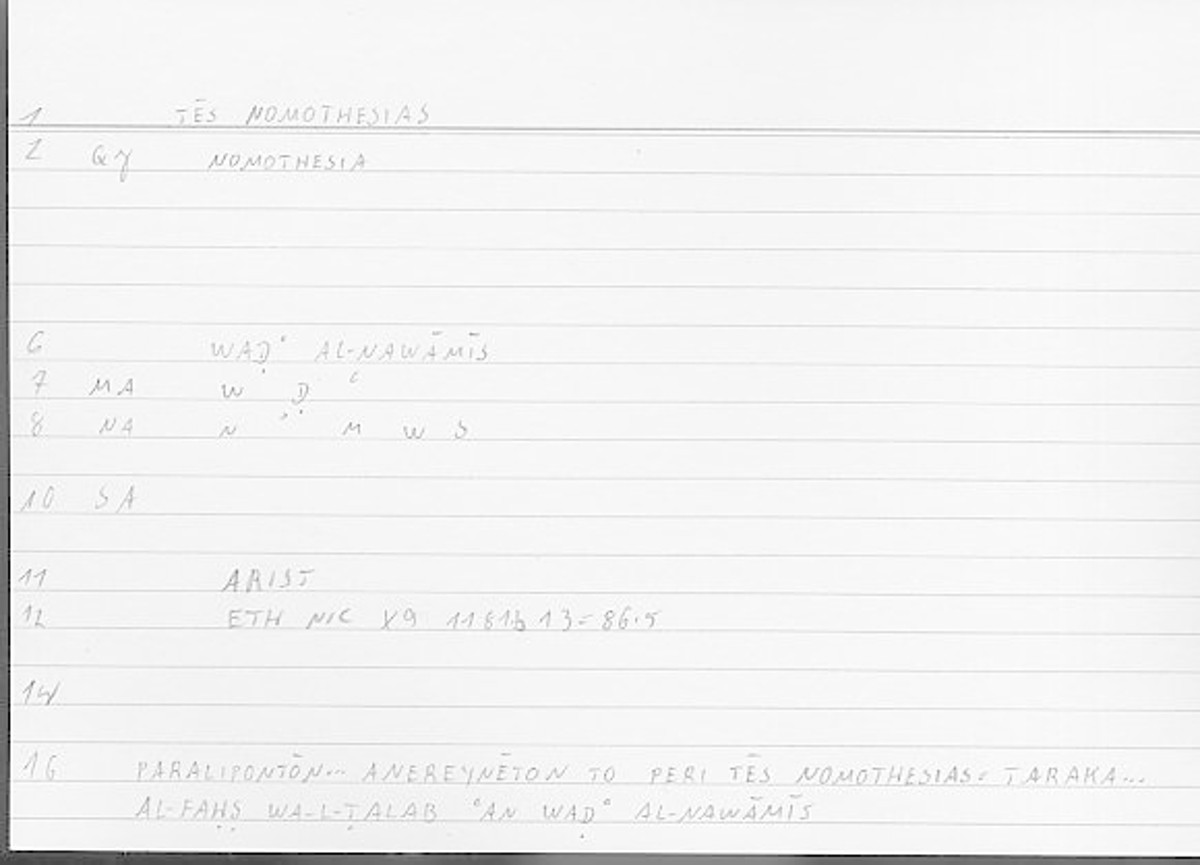 1 TĒS NOMOTHESIAS
2 Qγ NOMOTHESIA
6 WAḌʿ AL-NAWĀMĪS
7 MA W Ḍ ʿ
8 NA N M W S
10 SA
11 ARIST
12 ETH NIC X9 1181b13 = 86.5
14
16 PARALIPONTŌN... ANEREYNĒTON TO PERI TĒS NOMOTHESIAS = TARAKA...
AL-FAḤṢ WA-L-ṬALAB ʿAN WAḌʿ AL-NAWĀMĪS